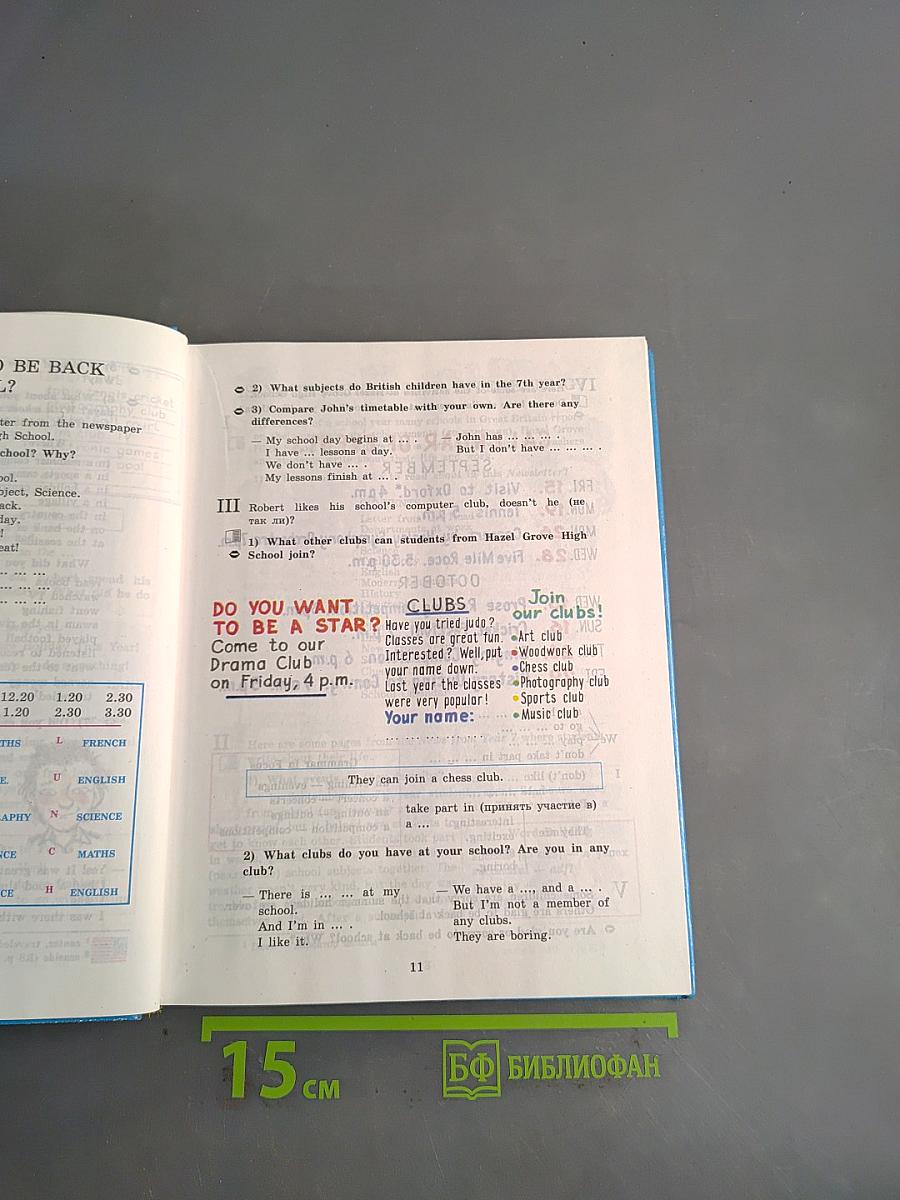 O BE BACK
L?
ter from the newspaper
gh School.
chool? Why?
ool.
bject, Science.
ack.
day.
!
eat!
... ... ...
... ... ...
... ... ...
12.20 1.20 2.30
1.20 2.30 3.30
THS L FRENCH
E. U ENGLISH
APHY N SCIENCE
NCE C MATHS
CE H ENGLISH
2) What subjects do British children have in the 7th year?
3) Compare John's timetable with your own. Are there any
differences?
— My school day begins at ... .
I have ... lessons a day.
We don't have ... .
My lessons finish at ... .
— John has ... ... ... .
But I don't have ... ... ... .
III Robert likes his school's computer club, doesn't he (не
так ли)?
1) What other clubs can students from Hazel Grove High
School join?
DO YOU WANT
TO BE A STAR?
Come to our
Drama Club
on Friday, 4 p.m.
CLUBS
Have you tried judo?
Classes are great fun.
Interested? Well, put
your name down.
Last year the classes
were very popular!
Your name: .....
..................
Join
our clubs!
•Art club
•Woodwork club
•Chess club
•Photography club
•Sports club
•Music club
They can join a chess club.
take part in (принять участие в)
a ...
2) What clubs do you have at your school? Are you in any
club?
— There is ... ... at my
school.
And I'm in ... .
I like it.
— We have a ..., and a ... .
But I'm not a member of
any clubs.
They are boring.
11
15 см
БФ БИБЛИОФАН